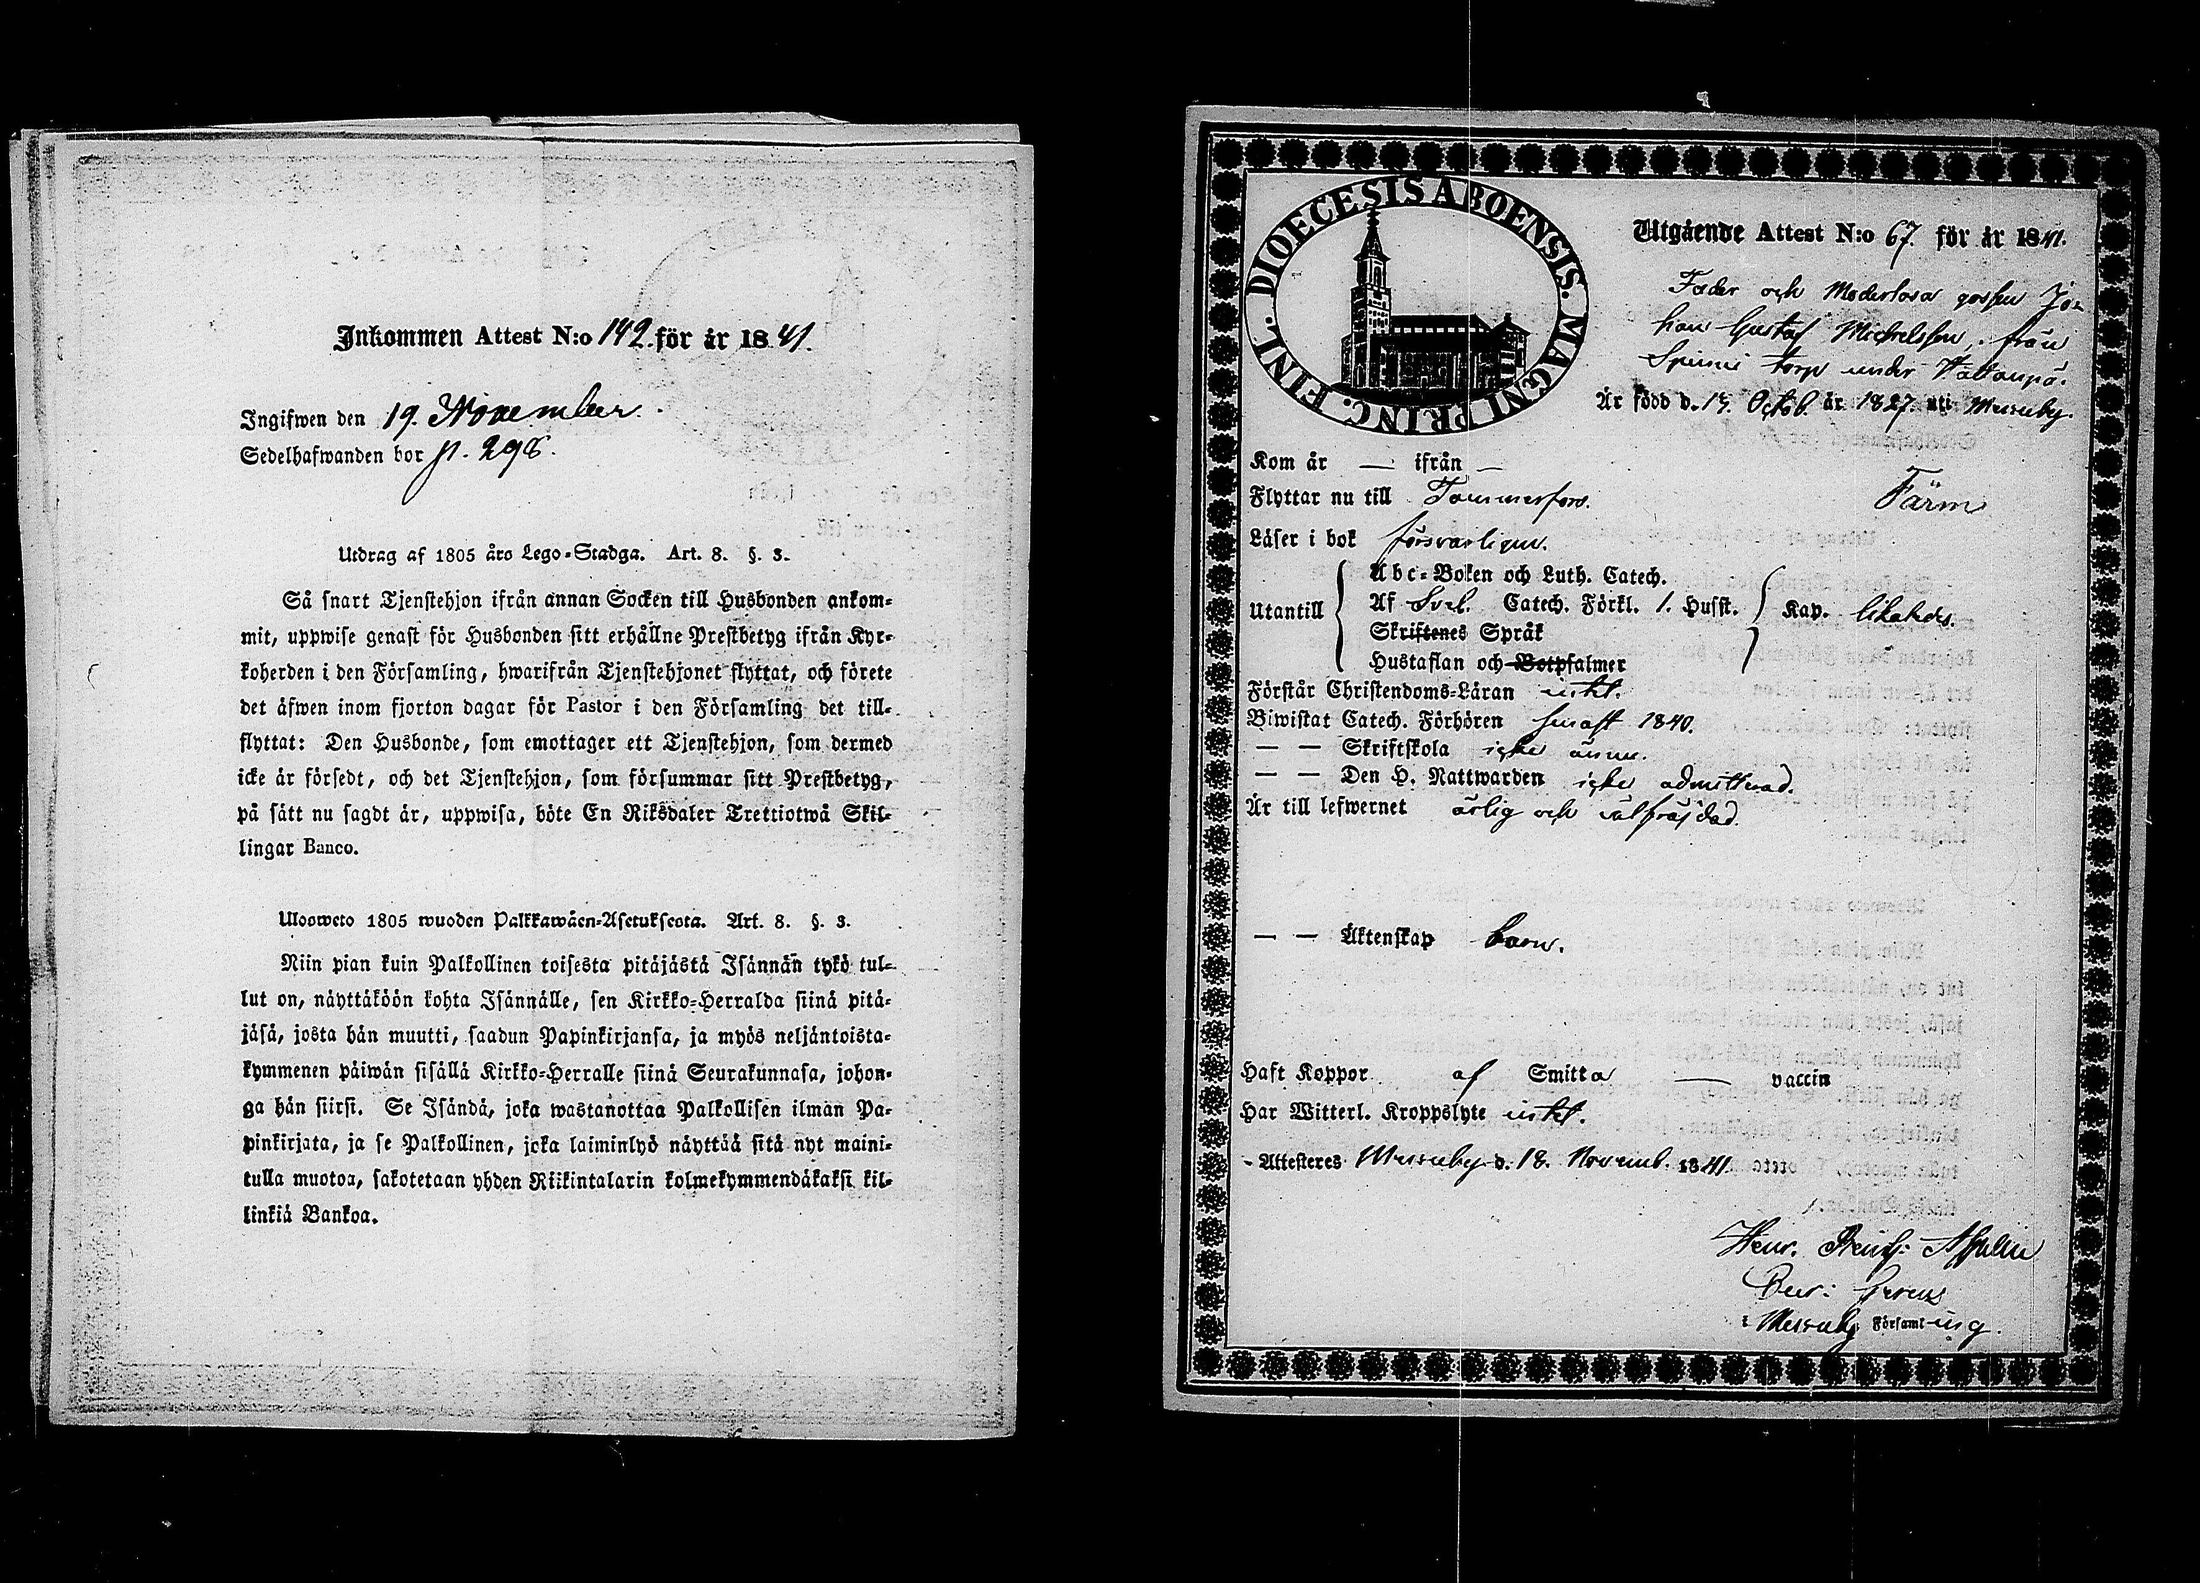 Inkommen Attest N:o 142. för år 1841.
Ingifwen den 19. November.
Sedelhafwanden bor p. 298.
Utdrag af 1805 åro Lego-Stadga. Art. 8. §. 3.
Så snart Tjenstehjon ifrån annan Socken till Husbonden ankom-
mit, uppwise genast för Husbonden sitt erhållne Prestbetyg ifrån Kyr-
koherden i den Församling, hwarifrån Tjenstehjonet flyttat, och förete
det äfwen inom fjorton dagar för Pastor i den Församling det till-
flyttat: Den Husbonde, som emottager ett Tjenstehjon, som dermed
icke är försedt, och det Tjenstehjon, som försummar sitt Prestbetyg,
på sätt nu sagdt är, uppwisa, böte En Riksdaler Trettiotwå Skil-
lingar Banco.
Ulosweto 1805 wuoden Palkkawäen-Asetuksesta. Art. 8. §. 3.
Niin pian kuin Palkollinen toisesta pitäjästä Isännän tykö tul-
lut on, näyttäköön kohta Isännälle, sen Kirkko-Herralda siinä pitä-
jäsä, josta hän muutti, saadun Papinkirjansa, ja myös neljäntoista-
kymmenen päiwän sisällä Kirkko-Herralle siinä Seurakunnasa, johon-
ga hän siirsi. Se Isändä, joka wastanottaa Palkollisen ilman Pa-
pinkirjata, ja se Palkollinen, joka laiminlyö näyttää sitä nyt maini-
tulla muotoa, sakotetaan yhden Riikintalarin kolmekymmendäkaksi kil-
linkiä Bankoa.
DIOECESIS ABOENSIS. MAGNI PRINC. FINL.
Utgående Attest N:o 67. för år 1841.
Fader och Moderlösa gossen Jo-
han Gustaf Michelsson, från
Spinni torp under Hattanpä.
Är född d. 15. Octob. år 1827. uti Messuby.
Kom år — ifrån —
Flyttar nu till Tammerfors.
Färm
Läser i bok försvarligen.
Abc-Boken och Luth. Catech.
Utantill Af Svel. Catech. Förkl. 1. Husst. Kap. likaledes.
Skriftenes Språk
Hustaflan och Botpsalmer
Förstår Christendoms-Läran intet.
Biwistat Catech. Förhören senast 1840.
— — Skriftskola icke ännu.
— — Den H. Nattwarden icke admitterad.
Är till lefwernet ärlig och välfräjdad.
— — Äktenskap barn.
Haft Koppor af Smitta — vaccin
Har Witterl. Kroppslyte intet.
Attesteres Messuby d. 18. Novemb. 1841.
Henr.
i Messuby Församling.